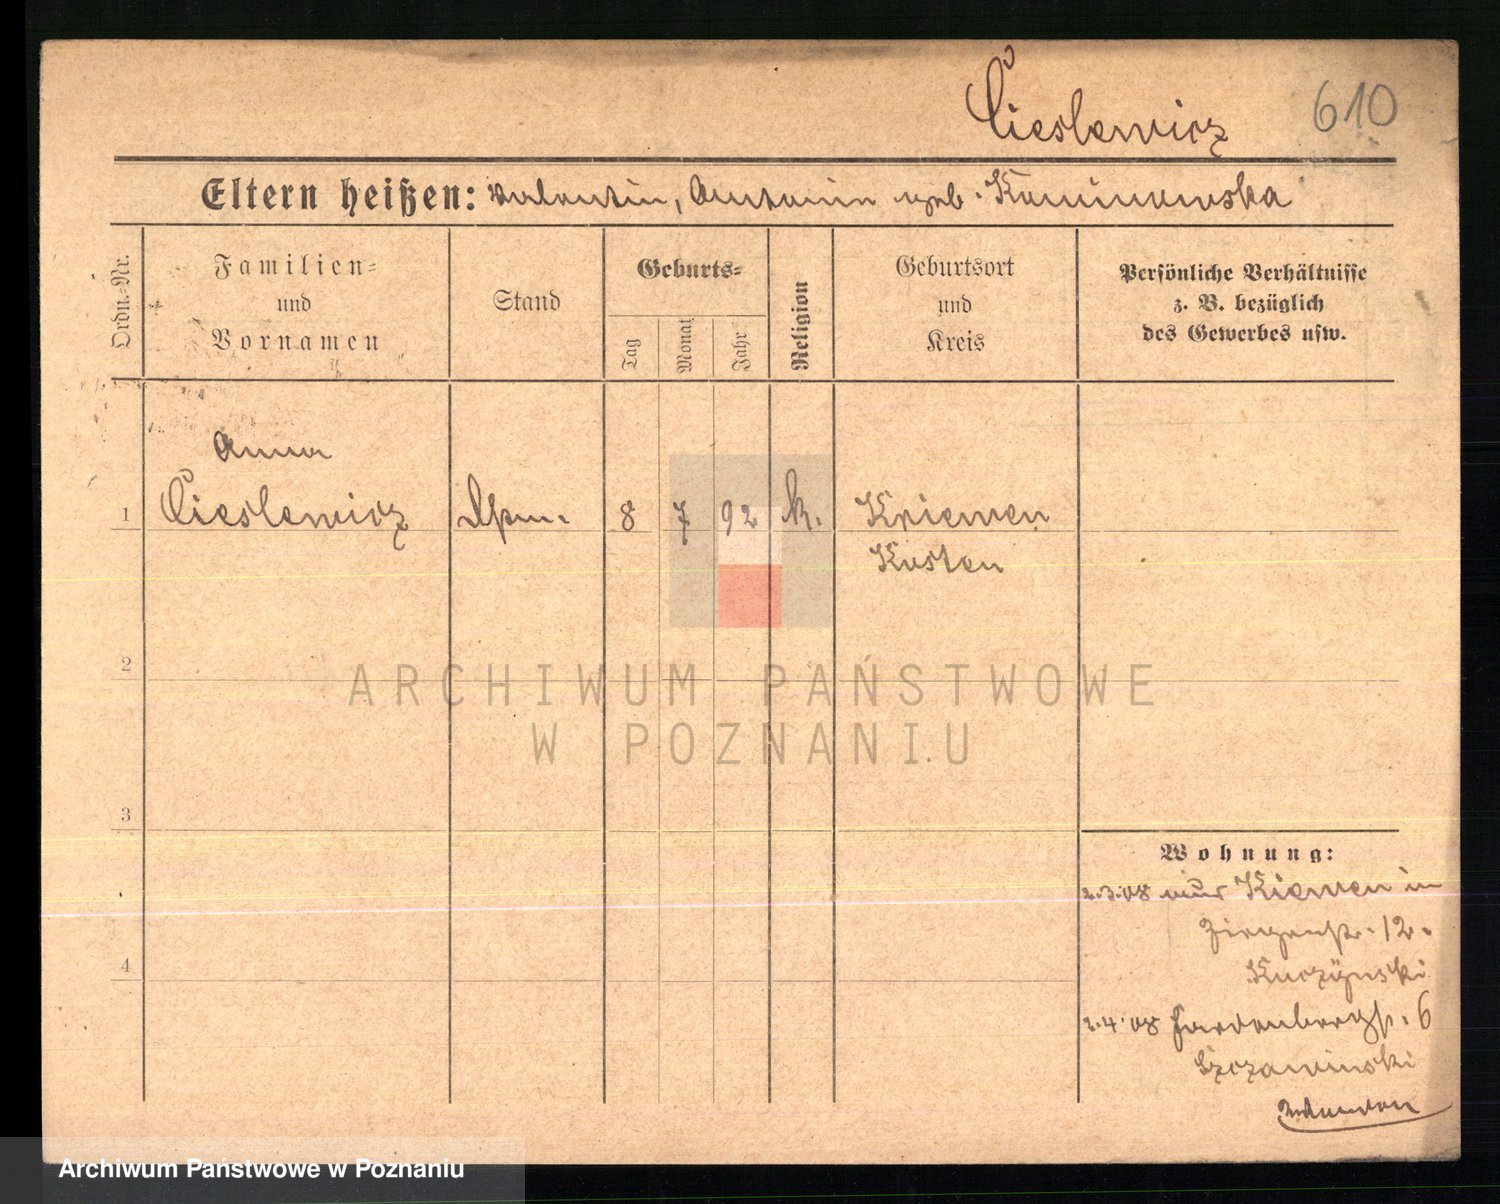 Cieslewicz 610
Eltern heißen: Valentin, Antonie geb. Kaminowska
Ordn.-Nr.
Familien-
und
Vornamen
Stand
Geburts-
Tag
Monat
Jahr
Religion
Geburtsort
und
Kreis
Persönliche Verhältnisse
z. B. bezüglich
des Gewerbes usw.
Anna
1 Cieslewicz 8 7 92 k. Kriewen
Kosten
2
ARCHIWUM PAŃSTWOWE
W POZNANIU
3
Wohnung:
2.3.08 aus Kriewen in
12.
Kuczynski
2.4.08 6
Szczawinski
4
Archiwum Państwowe w Poznaniu